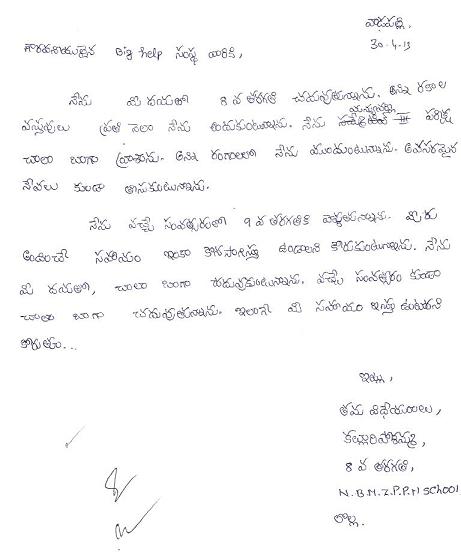 వాడపల్లి,
30-4-13
గౌరవనీయులైన Big help సంస్థ వారికి,
నేను మీ దయతో 8 వ తరగతి చదువుతున్నాను. అన్ని రకాల
వస్తువులు ప్రతి నెలా నేను అందుకుంటున్నాను. నేను III పరీక్ష
చాలా బాగా వ్రాశాను. అన్ని రంగాలలో నేను ముందుంటున్నాను. అవసరమైన
సేవలు కుండా తీసుకుంటున్నాను.
నేను వచ్చే సంవత్సరంలో 9 వ తరగతికి వెళ్తున్నాను. మీరు
అందించే సహాయం ఇంకా కొనసాగిస్తూ ఉండాలని కోరుకుంటున్నాను. నేను
మీ దయతో, చాలా బాగా చదువుకుంటున్నాను. వచ్చే సంవత్సరం కుడా
చాలా బాగా చదువుతున్నాను. ఇలాగే మీ సహాయం ఇస్తూ ఉంటారని
కోరుతూ...
ఇట్లు,
తమ విధేయురాలు,
8 వ తరగతి,
N.B.M.Z.P.P.H SCHOOL
లొల్ల.